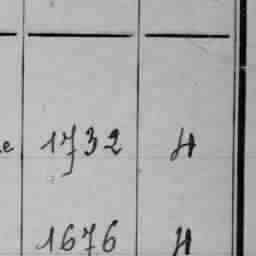 e 1732 H
1676 H